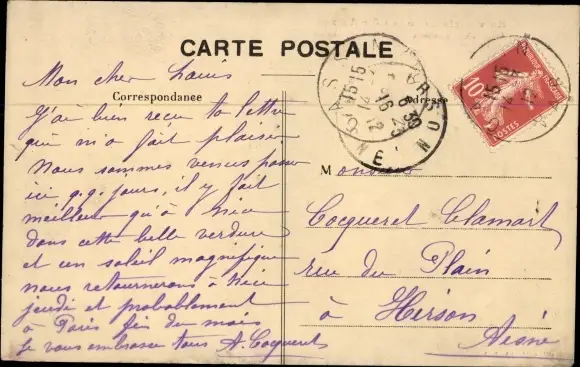 CARTE POSTALE
Correspondance
Adresse
Mon cher Louis
J'ai bien reçu ta lettre
qui m'a fait plaisir
Nous sommes venus passer
ici q.q. jours, il y fait
meilleur qu'à Nice
dans cette belle verdure
et un soleil magnifique
nous retournerons à Nice
jeudi et probablement
à Paris fin du mois
Je vous embrasse tous A. Cocqueret
Monsieur
Cocqueret Clamart
rue du Plain
à Hirson
Aisne
10
POSTES
15·15